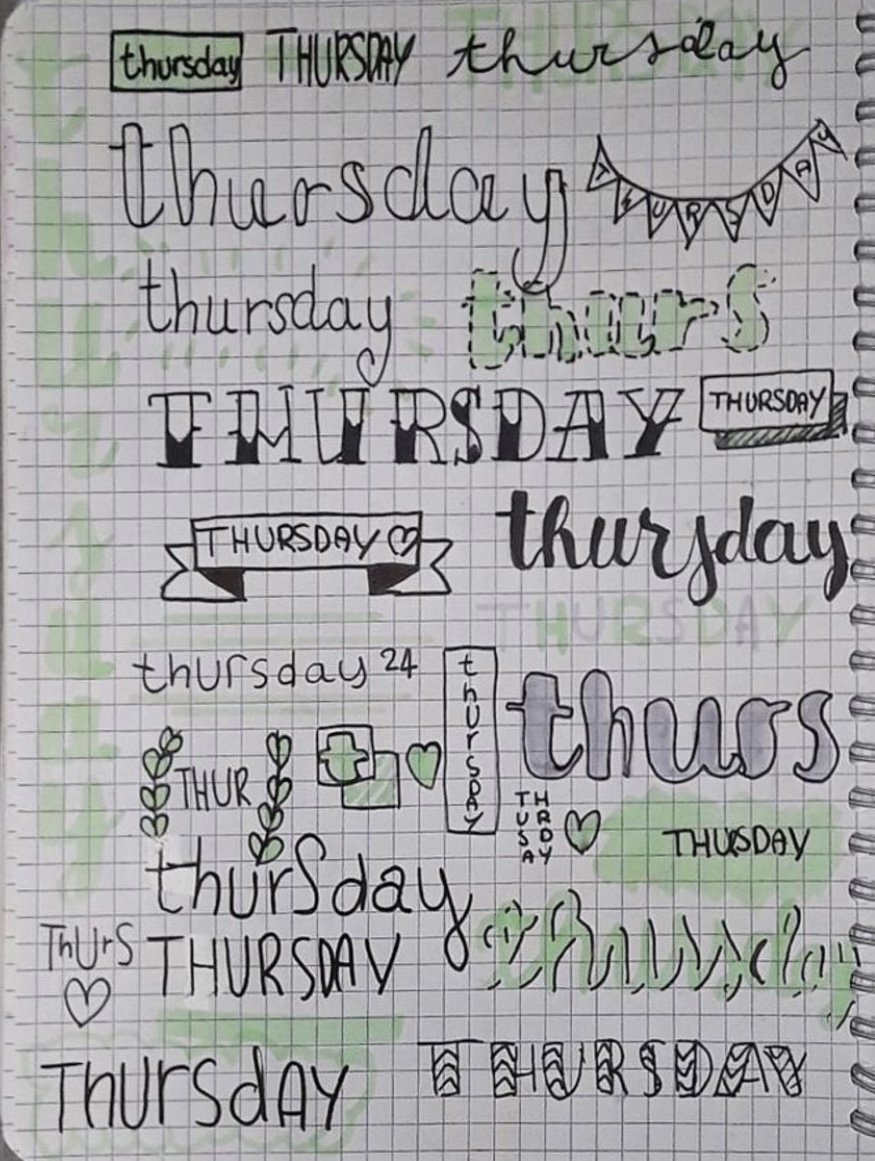 thursday THURSDAY thursday
thursday THURSDAY
thursday thurs
THURSDAY THURSDAY
THURSDAY thursday
THURSDAY
thursday 24 thursday thurs
THUR t
TH
UR
SD
AY
THUSDAY
thursday
Thurs THURSDAY thursday
Thursday THURSDAY
thursday